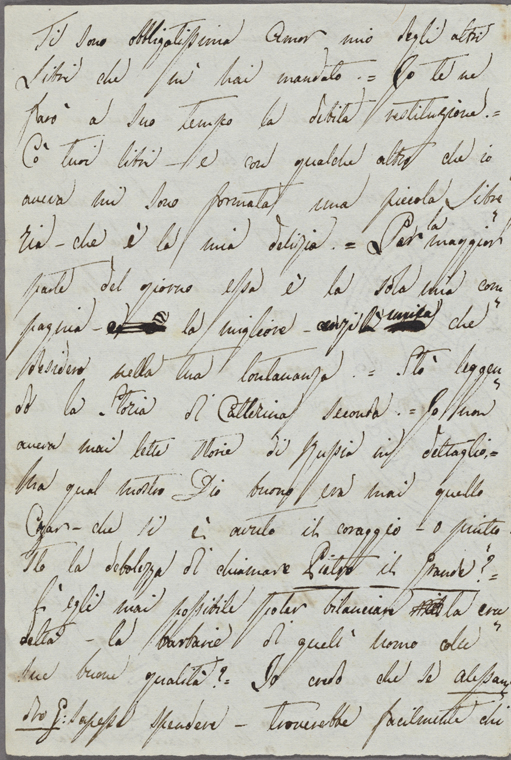 Ti sono obbligatissima Amor mio degli altri
Libri che m'hai mandato. = Io te ne
farò a suo tempo la debita restituzione. =
Cò tuoi libri – e con qualche altro che io
aveva mi sono formata una piccola Libre"
ria – che è la mia delizia. = Per la maggior
parte del giorno essa è la sola mia com"
pagnia – la migliore – anzi l'unica che
desidero nella tua lontananza = Stò leggen"
do la Storia di Catterina seconda. = Io non
aveva mai lette storie di Russia in dettaglio. =
Ma qual mostro Dio buono era mai quello
Czar – che si è avuto il coraggio – o piutto"
sto la debolezza di chiamare Pietro il Grande? =
È egli mai possibile poter bilanciare la cru"
deltà – la barbarie di quell'uomo colle
sue buone qualità? = Io credo che se alessan"
dro G: sapesse spendere – troverebbe facilmente chi